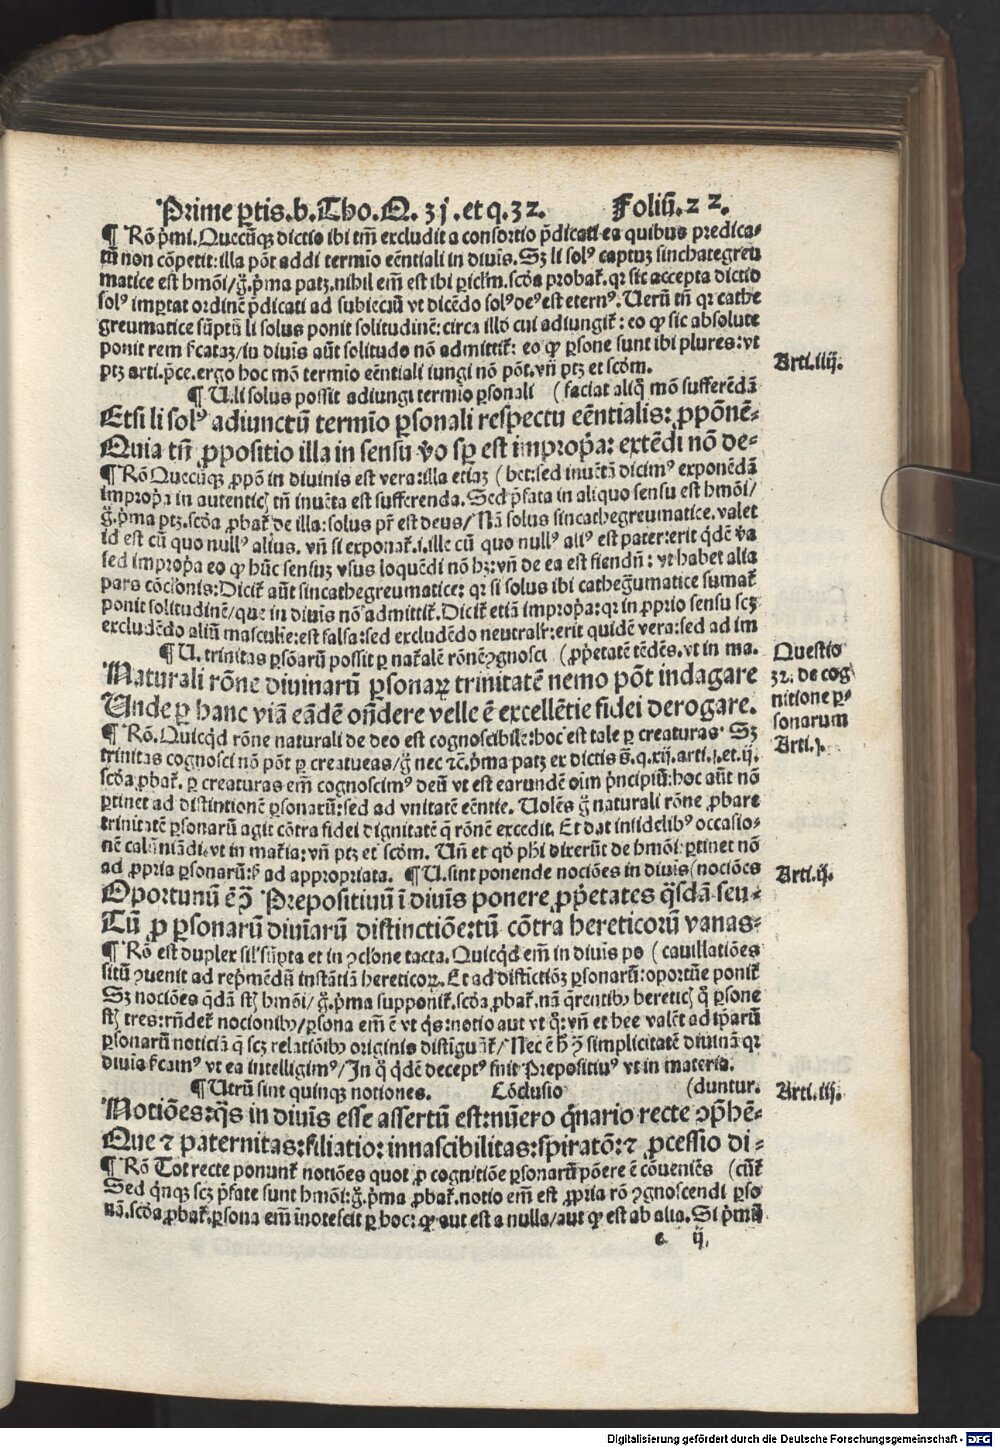 Prime ꝑtis.b.Tho.Q.3j.et q.32. Foliū.22.
¶ Rō p̄mi.Quecūqꝫ dictio ibi tm̄ excludit a consortio p̄dicati ea quibus predica⸗
tū non cōpetit:illa pōt addi termio eēntiali in diuis. Sꝫ li solꝰ captuꝫ sincathegreu
matice est hmōi/ḡ.p̄ma patꝫ.nihil em̄ est ibi ꝑiclm̄.scd̓a probat᷑.qꝛ sic accepta dictio
solꝰ imꝑtat ordinē p̄dicati ad subiectū vt dicēdo solꝰ deꝰ est eternꝰ.Uerū tn̄ qꝛ cathe
greumatice sūptū li solus ponit solitudinē:circa illd̓ cui adiungit᷑: eo ꝙ sic absolute
ponit rem s̓cataꝫ/in diuis aūt solitudo nō admittit᷑: eo ꝙ ꝑsone sunt ibi plures:vt
ptꝫ arti.p̄ce.ergo hoc mō termio eēntiali iungi nō pōt.vn̄ ptꝫ et scōm.
Arti.iiij.
¶ U.li solus possit adiungi termio ꝑsonali (faciat aliq̄ mō sufferēdā
Etsi li solꝰ adiunctū termīo ꝑsonali respectu eēntialis:ꝓpōnē⸗
Quia tn̄ ꝓpositio illa in sensu v̓o sꝑ est improp̓a: extēdi nō de⸗
¶ Rō Quecūqꝫ ꝓpō in diuinis est vera:illa etiaꝫ (bet:sed inuēta dicimꝰ exponēdā
improp̓a in autenticꝭ tn̄ inuēta est sufferenda. Sed p̄fata in aliquo sensu est hmōi/
ḡ.p̄ma ptꝫ.scd̓a ꝓbat᷑ de illa:solus pr̄ est deus/Nā solus sincathegreumatice.valet
id est cū quo nullꝰ alius. vn̄ si exponat᷑.i.ille cū quo nullꝰ aliꝰ est pater:erit q̇dē v̓a
sed improp̓a eo ꝙ hūc sensuꝫ vsus loquēdi nō hꝫ:vn̄ de ea est fiendū: vt habet alia
pars cōclonis:Dicit᷑ aūt sincathegreumatice: qꝛ si solus ibi cathegumatice sumat᷑
ponit solitudinē/que in diuis nō admittit᷑.Dicit᷑ etiā improp̓a:qꝛ in ꝓprio sensu scꝫ
excludēdo aliū masculie:est falsa:sed excludēdo neutralr̄:erit quidē vera:sed ad im
¶ U. trinitas ꝑsōarū possit ꝑ nat᷑alē rōnē ꝯgnosci (ꝓp̓etatē tēdēs.vt in ma.
Questio
32. de cog
nitione ꝑ⸗
sonarum
Arti.j.
Naturali rōne diuinarū ꝑsonaꝝ trinitatē nemo pōt indagare
Unde ꝑ hanc viā eādē on̄dere velle ē excellētie fidei derogare.
¶ Rō.Quicq̇d rōne naturali de deo est cognoscibile:hoc est tale ꝑ creaturas. Sꝫ
trinitas cognosci nō pōt ꝑ creatueas/ḡ nec ⁊c̄.p̄ma patꝫ ex dictis s̄.q.xij.arti.j.et.ij.
scd̓a ꝓbat᷑. ꝑ creaturas em̄ cognoscimꝰ deū vt est earundē oīm p̄ncipiū:hoc aūt nō
ꝑtinet ad distintionē ꝑsonarū:sed ad vnitatē eēntie. Uolēs ḡ naturali rōne ꝓbare
trinitatē ꝑsonarū agit cōtra fidei dignitatē q̄ rōnē excedit. Et dat infidelibꝰ occasio⸗
nē calūniādi.vt in mat᷑ia:vn̄ ptꝫ et scōm. Un̄ et qd̓ ph̓i dixerūt de hmōi ꝑtinet nō
ad ꝓpria ꝑsonarū:sꝫ ad appropriata. ¶ U.sint ponende nociōes in diuis (nociōes
Arti.ij.
Oportunū ē ꝯ̄ Prepositiuū ī diuis ponere ꝓp̓etates q̄sdā seu⸗
Tū ꝓ ꝑsonarū diuinarū distinctiōe:tū cōtra hereticorū vanas⸗
¶ Rō est duplex sil̓ sūpta et in ꝯcl̓one tacta. Quicq̇d em̄ in diuis po (cauillatiōes
sitū ꝯuenit ad rep̓mēdā instātiā hereticoꝝ.Et ad distictiōꝫ ꝑsonarū:oportūe ponit᷑
Sꝫ nociōes q̄dā st̄ hmōi/ḡ.p̄ma supponit᷑.scd̓a ꝓbat᷑.nā q̄rentibꝫ hereticꝭ q̄ ꝑsone
st̄ tres:rn̄det᷑ nocionibꝫ/ꝑsona em̄ ē vt q̇s:notio aut vt q̄:vn̄ et hee valēt ad ip̄arū
ꝑsonarū noticiā q̄ scꝫ relatiōibꝫ originis distiguūt᷑/Nec ē h̄ ꝯ̄ simplicitatē diuinā qꝛ
diuia s̓camꝰ vt ea intelligimꝰ/In q̄ q̇dē deceptꝰ fuit Prepositiuꝰ vt in materia.
¶ Utrū sint quinqꝫ notiones. Cōclusio (duntur.
Arti.iij.
Notiōes:q̄s in diuis esse assertū est:nūero q̇nario recte ꝯp̓hē⸗
Que ⁊ paternitas:filiatio:innascibilitas:spiratō:⁊ ꝓcessio di⸗
¶ Rō Tot recte ponunt᷑ notiōes quot ꝓ cognitiōe ꝑsonarū pōere ē cōueniēs (cūt᷑
Sed q̇nqꝫ scꝫ p̄fate sunt hmōi:ḡ.p̄ma ꝓbat᷑.notio em̄ est ꝓpria rō ꝯgnoscendi ꝑso
nā.scd̓a ꝓbat᷑.ꝑsona em̄ inotescit ꝑ hoc: ꝙ aut est a nulla/aut ꝙ est ab alia.Si p̄mū
e ij.
Digitalisierung gefördert durch die Deutsche Forschungsgemeinschaft - DFG